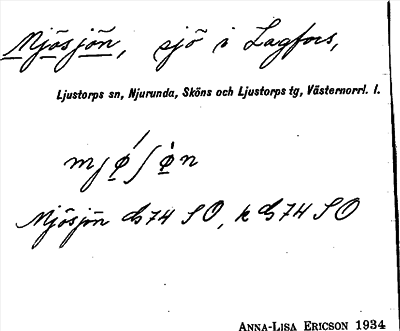 Mjösjön, sjö i Lagfors,
Ljustorps sn, Njurunda, Sköns och Ljustorps tg, Västernorrl. l.
Mjösjön G74 SO, k G74 SO
ANNA-LISA ERICSON 1934